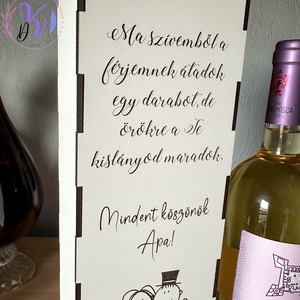 Ma szívemből a
férjemnek átadok
egy darabot, de
örökre a Te
kislányod maradok.
Mindent köszönök
Apa!